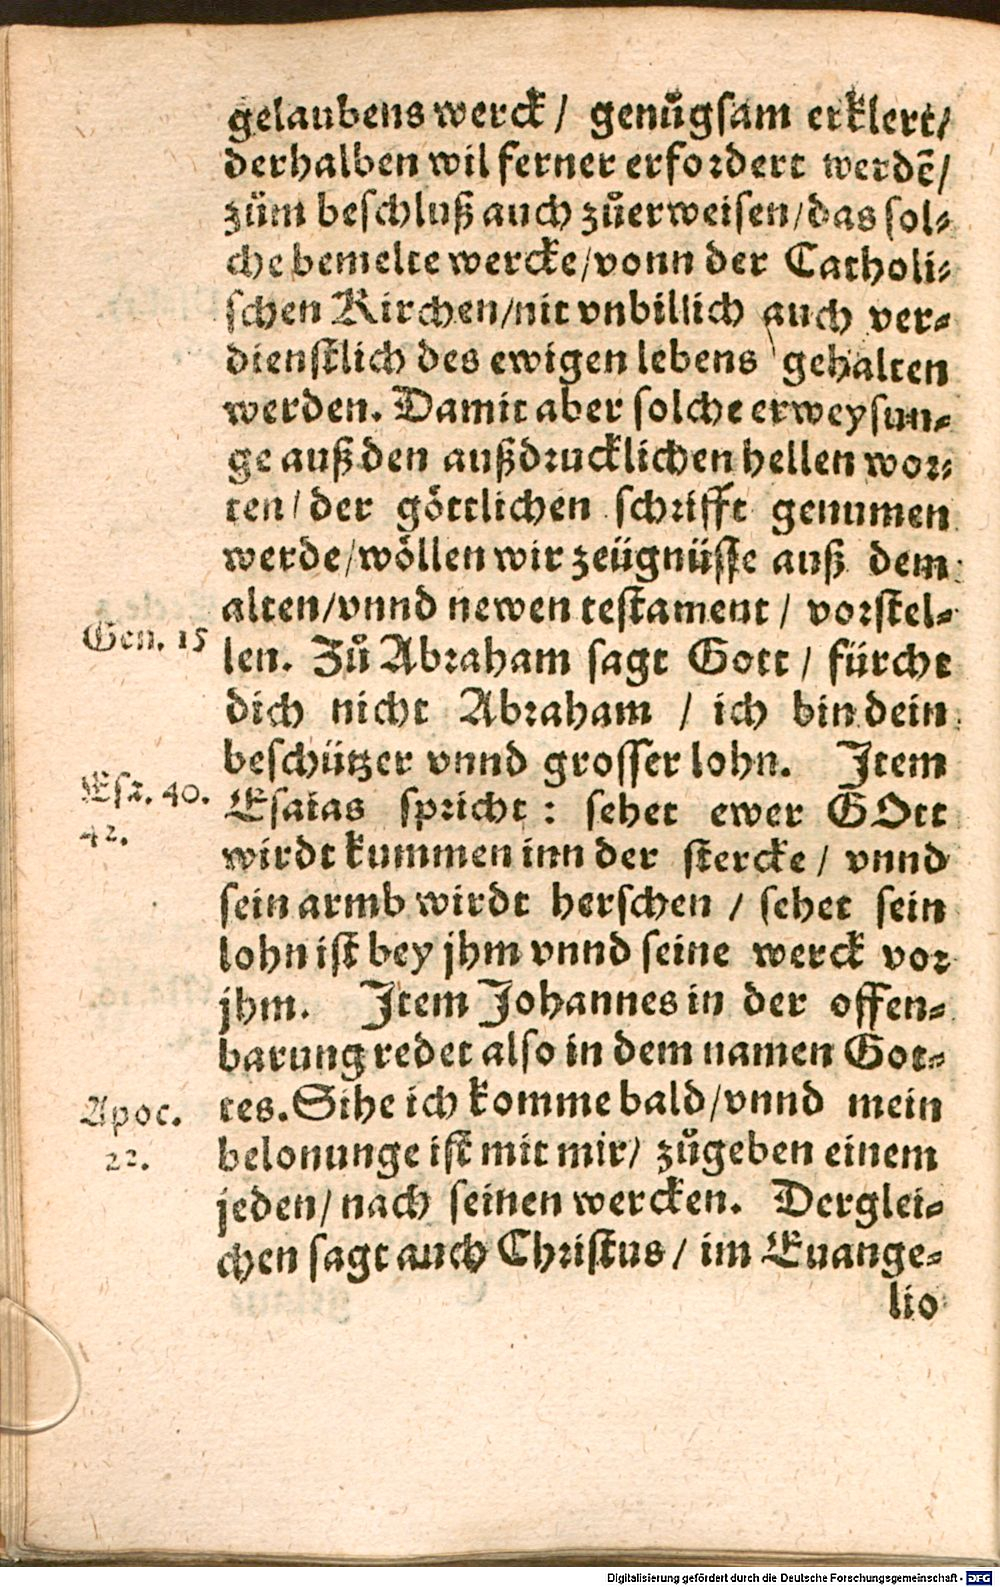 gelaubens werck / genůgsam erklert /
derhalben wil ferner erfordert werdē /
zům beschluß auch zůerweisen / das sol⸗
che bemelte wercke / vonn der Catholi⸗
schen Kirchen / nit vnbillich auch ver⸗
dienstlich des ewigen lebens gehalten
werden. Damit aber solche erweysun⸗
ge auß den außdrucklichen hellen wor⸗
ten / der göttlichen schrifft genumen
werde / wöllen wir zeügnüsse auß dem
alten / vnnd newen testament / vorstel⸗
Gen. 15
len. Zů Abraham sagt Gott / fürcht
dich nicht Abraham / ich bin dein
beschützer vnnd grosser lohn. Item
Esa. 40.
42.
Esaias spricht : sehet ewer GOtt
wirdt kummen inn der stercke / vnnd
sein armb wirdt herschen / sehet sein
lohn ist bey jhm vnnd seine werck vor
jhm. Item Johannes in der offen⸗
barung redet also in dem namen Got⸗
Apoc.
22.
tes. Sihe ich komme bald / vnnd mein
belonunge ist mit mir / zůgeben einem
jeden / nach seinen wercken. Derglei⸗
chen sagt auch Christus / im Euange⸗
lio
Digitalisierung gefördert durch die Deutsche Forschungsgemeinschaft - DFG